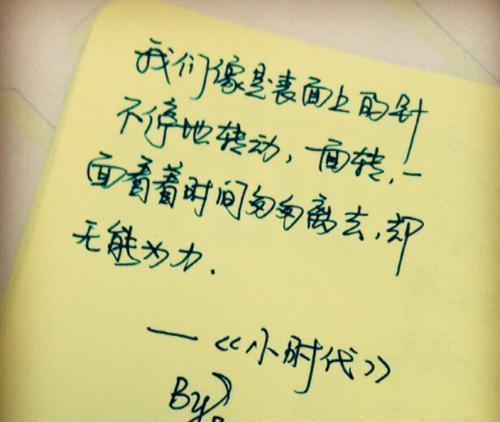 我们像是表面上的针
不停地转动,一面转,一
面看着时间匆匆离去,却
无能为力.
—《小时代》
By